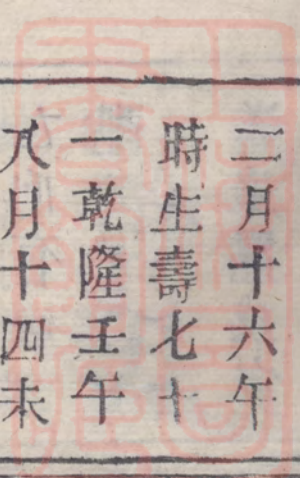 二月十六午
時生壽七十
一乾隆壬午
八月十四未